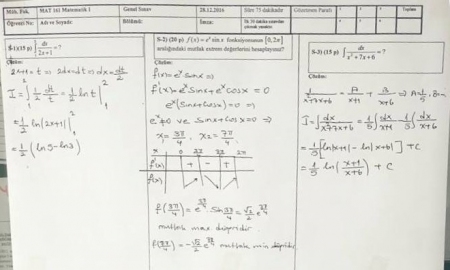 Müh. Fak.
MAT 161 Matematik I
Genel Sınav
28.12.2016
Süre 75 dakikadır
Gözetmen Paraflı
Toplam
Öğrenci No:
Adı ve Soyadı:
Bölümü:
İmza:
S-1)(15 p) ∫ dx/(2x+1) = ?
Çözüm:
2x+1 = t ⇒ 2dx = dt ⇒ dx = dt/2
I = ∫ 1/2 dt/t = 1/2 ln t |
= 1/2 ln|2x+1| |
= 1/2 (ln5 - ln3)
S-2) (20 p) f(x) = eˣ sin x fonksiyonunun [0, 2π]
aralığındaki mutlak extrem değerlerini hesaplayınız?
Çözüm:
f(x) = eˣ sinx
f'(x) = eˣ sinx + eˣ cosx = 0
eˣ(sinx + cosx) = 0 ⇒
eˣ ≠ 0 ve sinx + cosx = 0 ⇒
x₁ = 3π/4, x₂ = 7π/4
f'(x) + - +
f(x)
f(3π/4) = e^(3π/4) sin 3π/4 = √2/2 e^(3π/4)
mutlak max değeridir.
mutlak min
S-3) (15 p) ∫ dx/(x²+7x+6) = ?
Çözüm:
1/(x²+7x+6) = A/(x+1) + B/(x+6)
I = ∫ dx/(x²+7x+6) = 1/5 ∫ dx/(x+1) - 1/5 ∫ dx/(x+6)
= 1/5 [ln|x+1| - ln|x+6|] + C
= 1/5 ln(x+1/x+6) + C